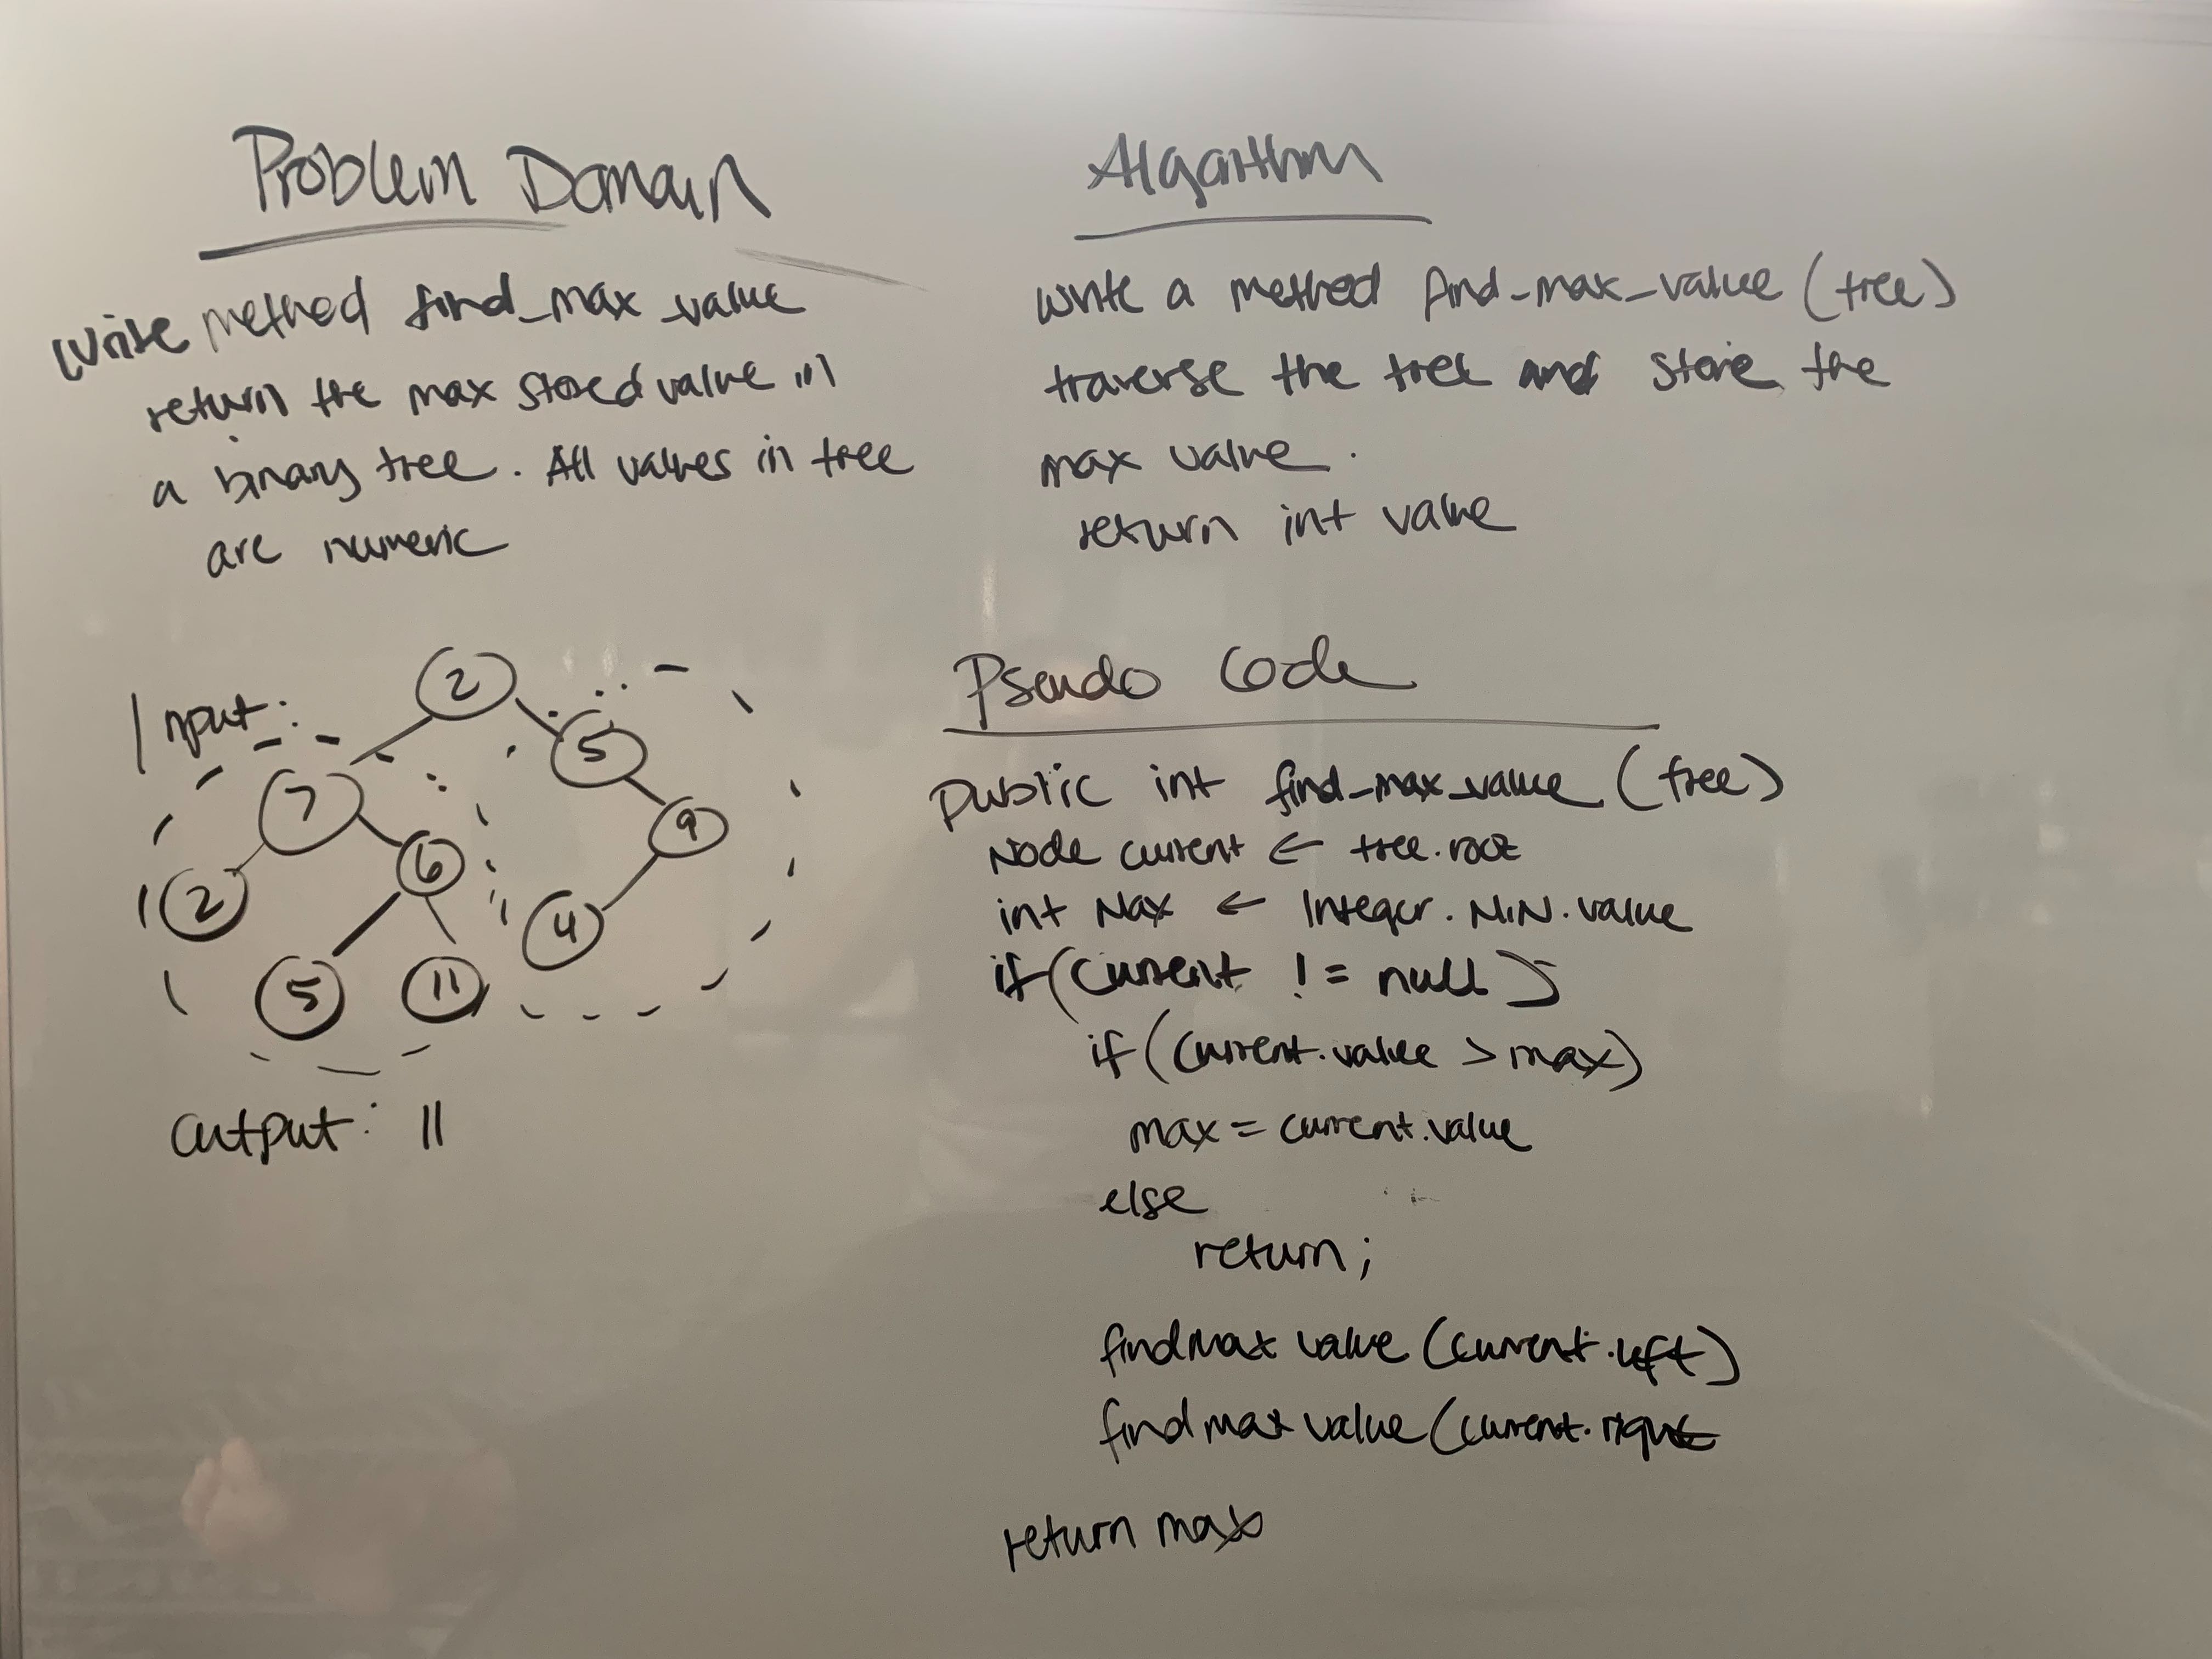 Problem Domain
Write method find_max_value
return the max stored value in
a binary tree. All values in tree
are numeric
Input:
2
5
7
9
6
2
4
5
11
Output: 11
Algorithm
Write a method find_max_value (tree)
traverse the tree and store the
max value.
return int value
Pseudo Code
public int find_max_value (tree)
Node current ← tree.root
int Max ← Integer.MIN.value
if (current != null)
if (current.value > max)
max = current.value
else
return;
findMax value (current.left)
find max value (current.right
return max